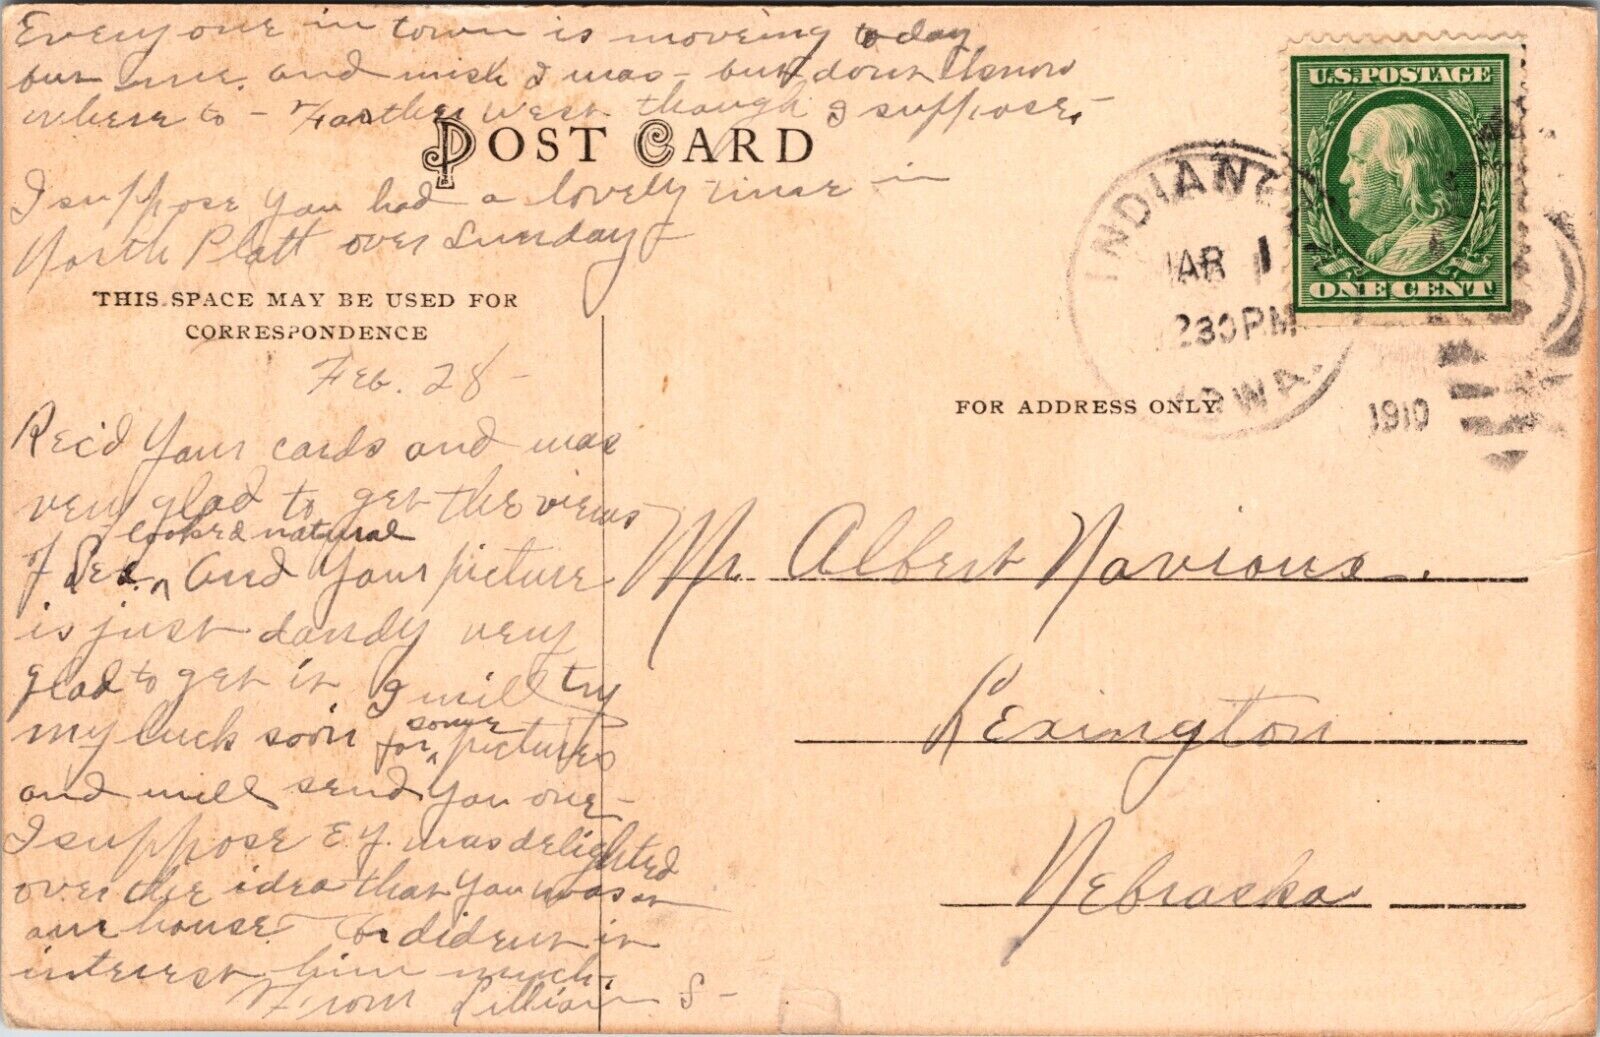 Everyone in town is moveing today
but me. and wish I was - but dont know
where to - Farther west though I suppose,-
POST CARD
I suppose you had a lovely time in
North Platt over Sunday-
THIS SPACE MAY BE USED FOR
CORRESPONDENCE
Feb. 28 -
Rec'd your cards and was
very glad to get the views
looked natural
of And your picture
is just dandy very
glad to get it I will try
my luck soon for some pictures
and will send you one-
I suppose E.Y. was delighted
over the idea that you was at
our house. Or dident it
interest him much.
From Lillian S-
U.S. POSTAGE
ONE CENT
MAR 1
230 PM
IOWA.
1910
FOR ADDRESS ONLY
Mr. Albert Navious.
Lexington
Nebraska